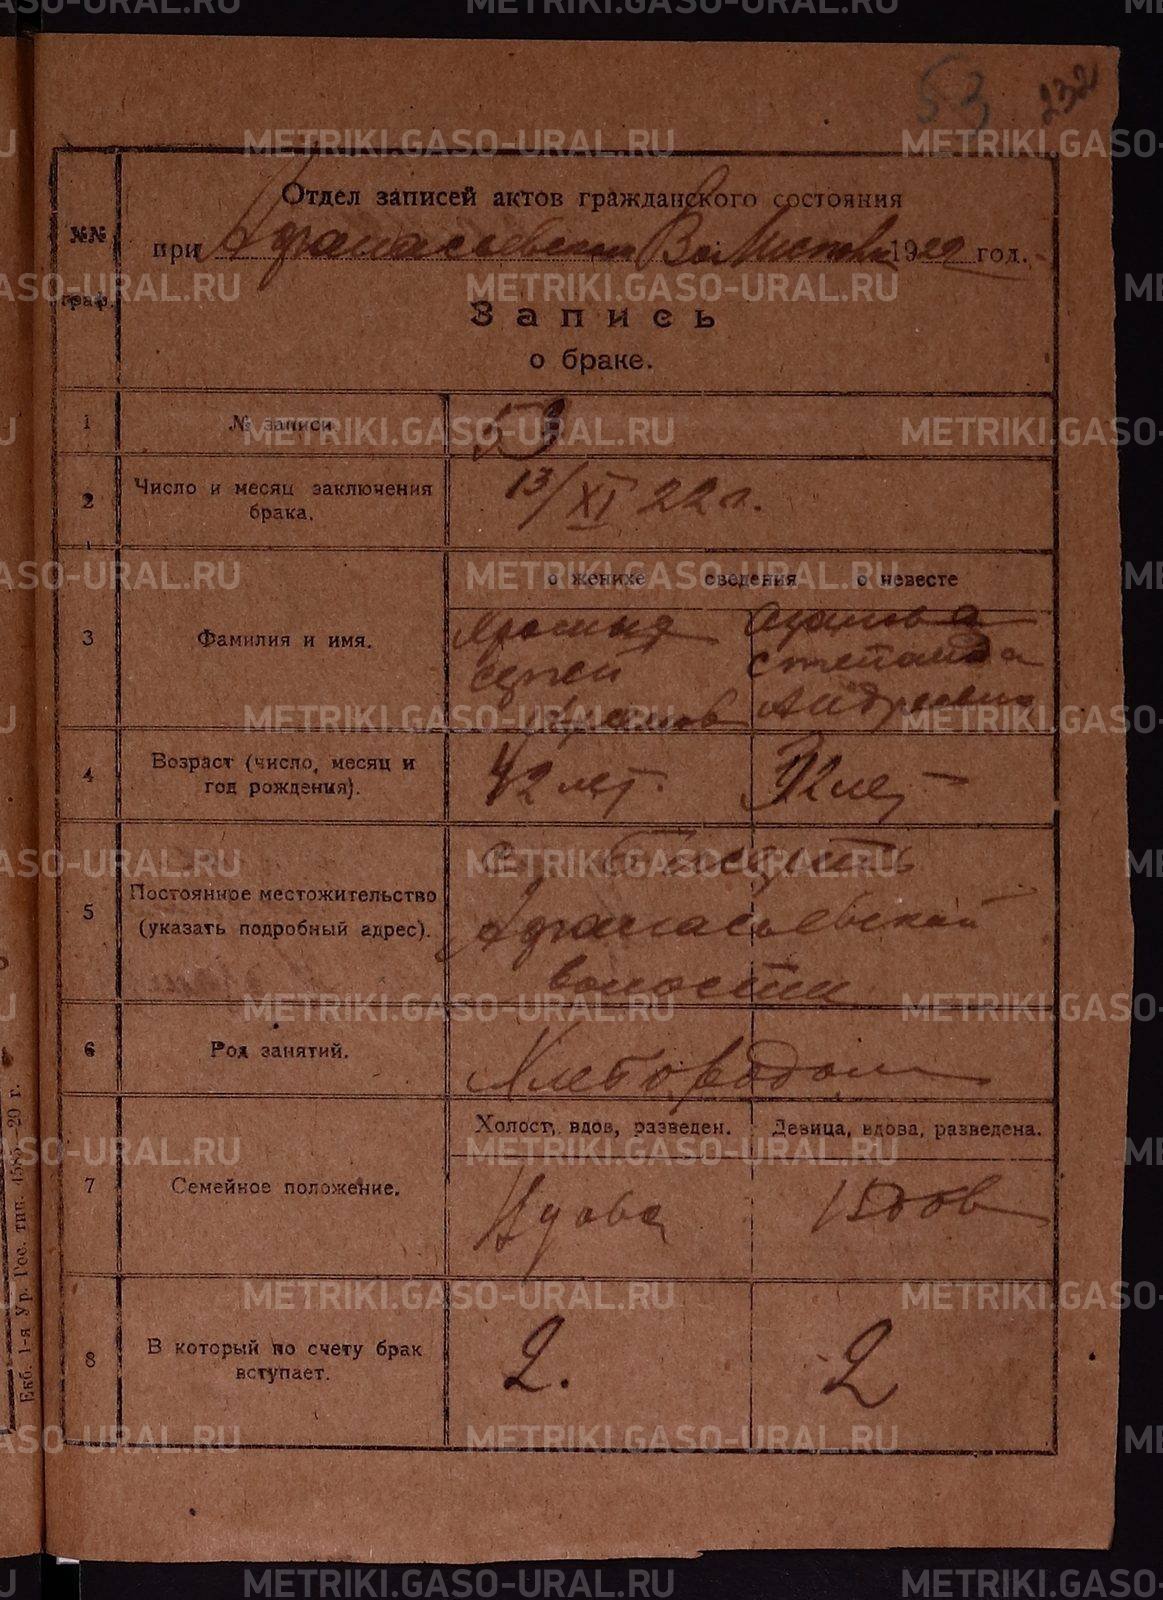 53 232
Отдел записей актов гражданского состояния
№№ граф.
при Афанасьевском Вол 1922 год.
Запись
о браке.
1 № записи 53
2 Число и месяц заключения брака. 13/XI 22 г.
о женихе сведения о невесте
3 Фамилия и имя.
Степанида
Андреевна
4 Возраст (число, месяц и год рождения). 42 лет. 32 лет
5 Постоянное местожительство (указать подробный адрес).
Афанасьевской
волости
6 Род занятий. Хлебородом
Холост, вдов, разведен. Девица, вдова, разведена.
7 Семейное положение. Вдова Вдов
8 В который по счету брак вступает. 2. 2
Екб. 1-я Ур. Гос. тип. 4585—20 г.
METRIKI.GASO-URAL.RU